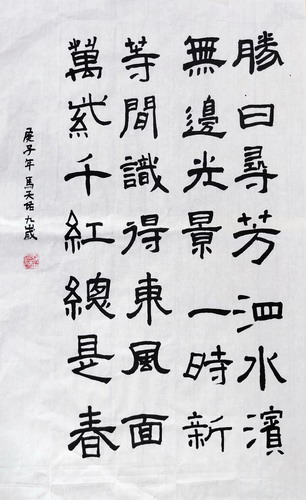 勝日尋芳泗水濱
無邊光景一時新
等閒識得東風面
萬紫千紅總是春
庚子年馬天佑九歲